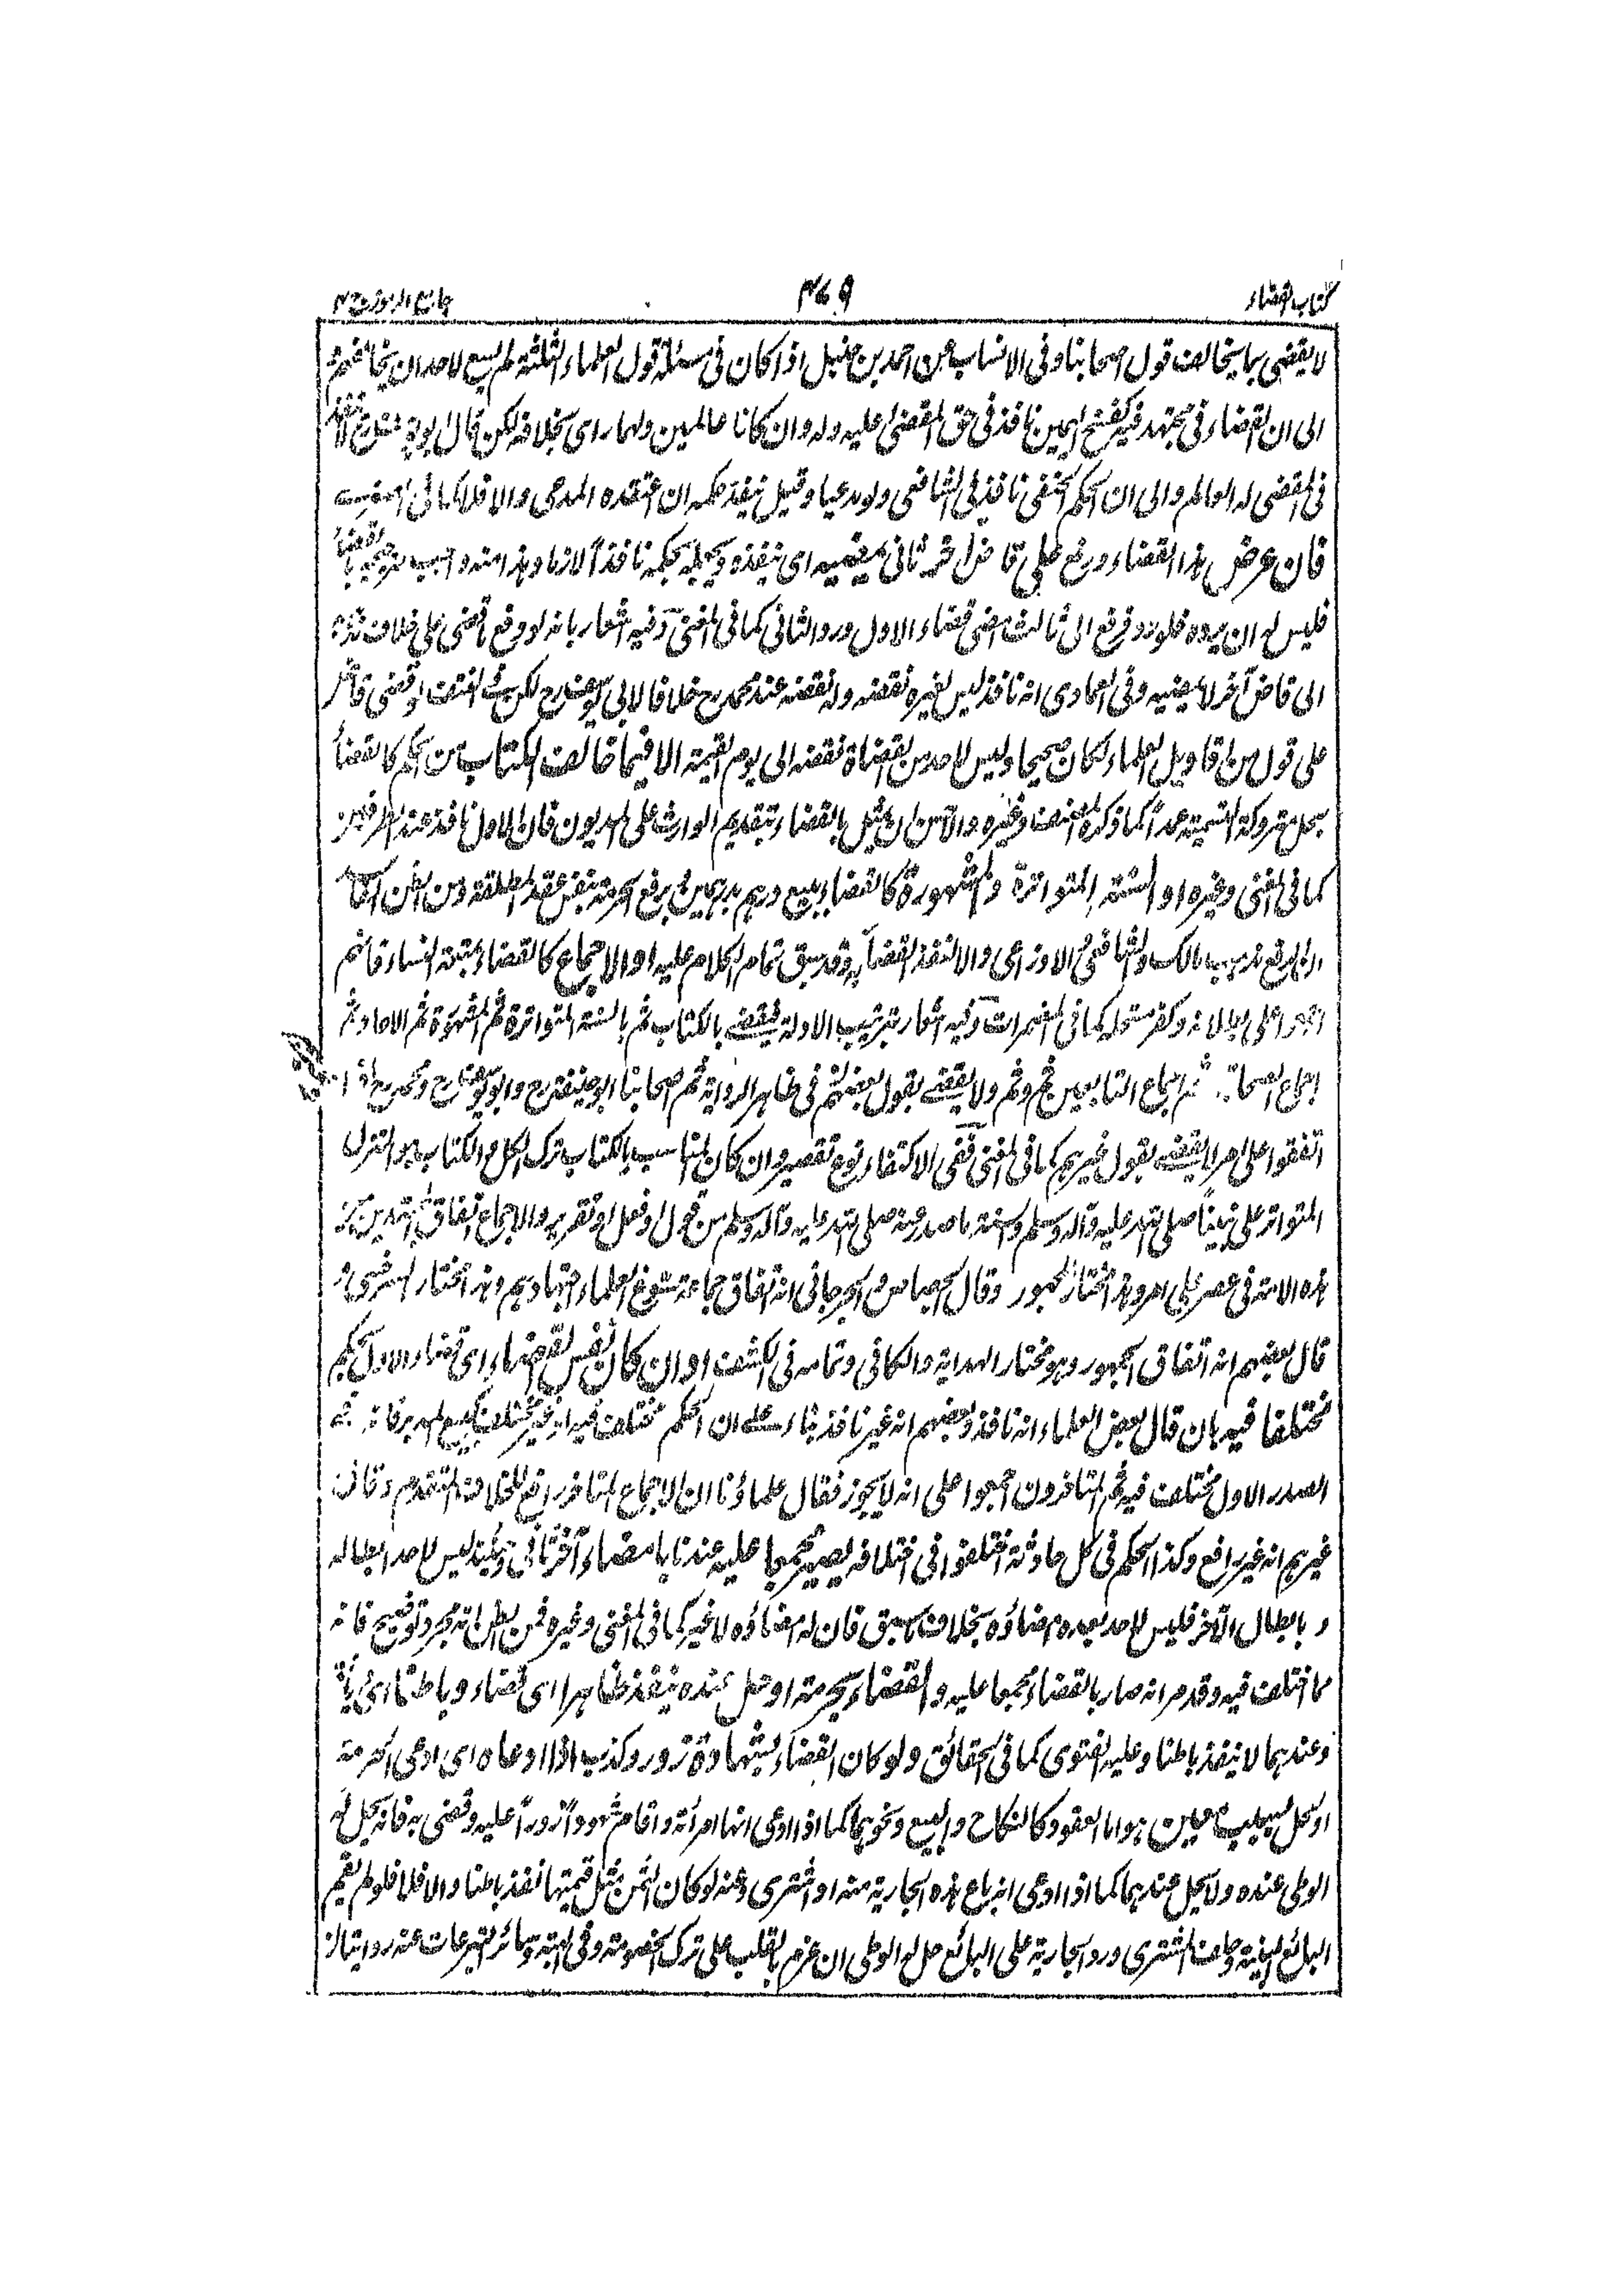 كتاب القضاء
٣٦٩
جامع الرموز ج٢
لا يقضى بما يخالف قول اصحابنا وفى الانساب عن احمد بن حنبل اذا كان فى مسئلة قول العلماء الثلثة لم يسع لاحد ان يخالفهم
الى ان القضاء فى مجتهد فيه كفسخ اليمين نافذ فى حق المقضى عليه وله وان كانا عالمين ولهما راى بخلافه لكن قال ابو يوسف رح لا ينفذ
فى المقضى له العالم والى ان الحكم الحنفى نافذ فى الشافعى ولو مدعيا وقيل ينفذ حكمه ان اعتقده المدعى والا فلا كما فى
فان عرض هذا القضاء ورفع على قاض آخر ثانى يمضيه اى ينفذه ويجعله بحكمه نافذا لازما وهذا
فليس له ان يرده فلو رد فرفع الى ثالث امضى قضاء الاول ورد الثانى كما فى المغنى وفيه اشعار بانه لو وقع قضى على خلاف
الى قاض آخر لا يمضيه وفى العمادى انه نافذ ليس لغيره نقضه وله نقضه عند محمد رح خلافا لابى يوسف رح لكن فى المختلف لو قضى قاض
على قول من اقاويل العلماء لكان صحيحا وليس لاحد من القضاة نقضه الى يوم القيمة الا فيما خالف الكتاب من الحكم كالقضاء
بحل متروكة التسمية عمدا كما ذكره المصنف وغيره والاحسن ان يمثل بالقضاء بتقديم الوارث على المديون فان الاول نافذ عند الطرفين
كما فى المغنى وغيره او السنة المتواترة والمشهورة كالقضاء ببيع درهم بدرهمين
مالك والشافعى الاوزاعى والا لنفذ القضاء به وقد سبق تمام الكلام عليه او الاجماع كالقضاء بمتعة النساء فانهم
اجمعوا على بطلانه وكفر مستحله كما فى المضمرات وفيه اشعار بترتيب الادلة فيقضى بالكتاب ثم بالسنة المتواترة ثم المشهورة ثم الاحاد ثم
اجماع الصحابة ثم اجماع التابعين ثم وثم ولا يقضى بقول بعضهم فى ظاهر الرواية ثم اصحابنا ابو حنيفة رح وابو يوسف رح ومحمد رح اذا
اتفقوا على امر لا يقضى بقول غيرهم كما فى المغنى ففى الاكتفاء نوع تقصير وان كان المناسب بالكتاب ترك الكل والكتاب هو المنزل
المتواتر على نبينا صلى الله عليه وآله وسلم وسنته ما صدر عنه صلى الله عليه وآله وسلم من قول او فعل او تقرير والاجماع اتفاق المجتهدين من
هذه الامة فى عصر على امر وهذا مختار الجمهور وقال الجصاص والجرجانى انه اتفاق جماعة يسوغ العلماء اجتهادهم وهذا مختار السرخسى و
قال بعضهم انه اتفاق الجمهور وهو مختار الهداية والكافى وتمامه فى الكشف او ان كان نفس القضاء اى قضاء الاول الحكم
مختلفا فيه بان قال بعض العلماء انه نافذ وبعضهم انه غير نافذ بناء على ان الحكم مختلف فيه او غير مختلف كبيع المدبر فانه
الصدر الاول مختلف فيه ثم المتاخرون اجمعوا على انه لا يجوز فقال علماؤنا ان الاجماع المتاخر رافع للخلاف المتقدم وقال
غيرهم انه غير رافع وكذا الحكم فى كل حادثة اختلفوا فى اختلافه يصير مجمعا عليه عندنا بامضاء آخر ثانى وحينئذ ليس لاحد ابطاله
و بابطال الآخر فليس لاحد بعده امضاؤه بخلاف ما سبق فان له امضاؤه لا غير كما فى المغنى وغيره فمن الظن انه مجرد توضيح فانه
مما اختلف فيه وقد مر انه صار بالقضاء مجمعا عليه والقضاء بحرمة او حل عنده ينفذ ظاهرا اى قضاء وباطنا اى ديانة
وعندهما لا ينفذ باطنا وعليه الفتوى كما فى الحقائق ولو كان القضاء بشهادة زور وكذب اذا ادعاه اى ادعى الحرمة
او الحل بسبب معين هو اما العقود كالنكاح والبيع ونحوهما كما اذا ادعى انها امرأته واقام شهودا زورا عليه وقضى به فانه يحل له
الوطى عنده ولا يحل عندهما كما اذا ادعى انه باع هذه الجارية منه او اشترى وعنه لو كان الثمن مثل قيمتها نفذ باطنا والا فلا فلو لم يقم
البائع البينة وحلف المشترى ورد الجارية على البائع حل له الوطى ان عزم بالقلب على ترك الخصومة وفى الهبة وسائر التبرعات عنه روايتان